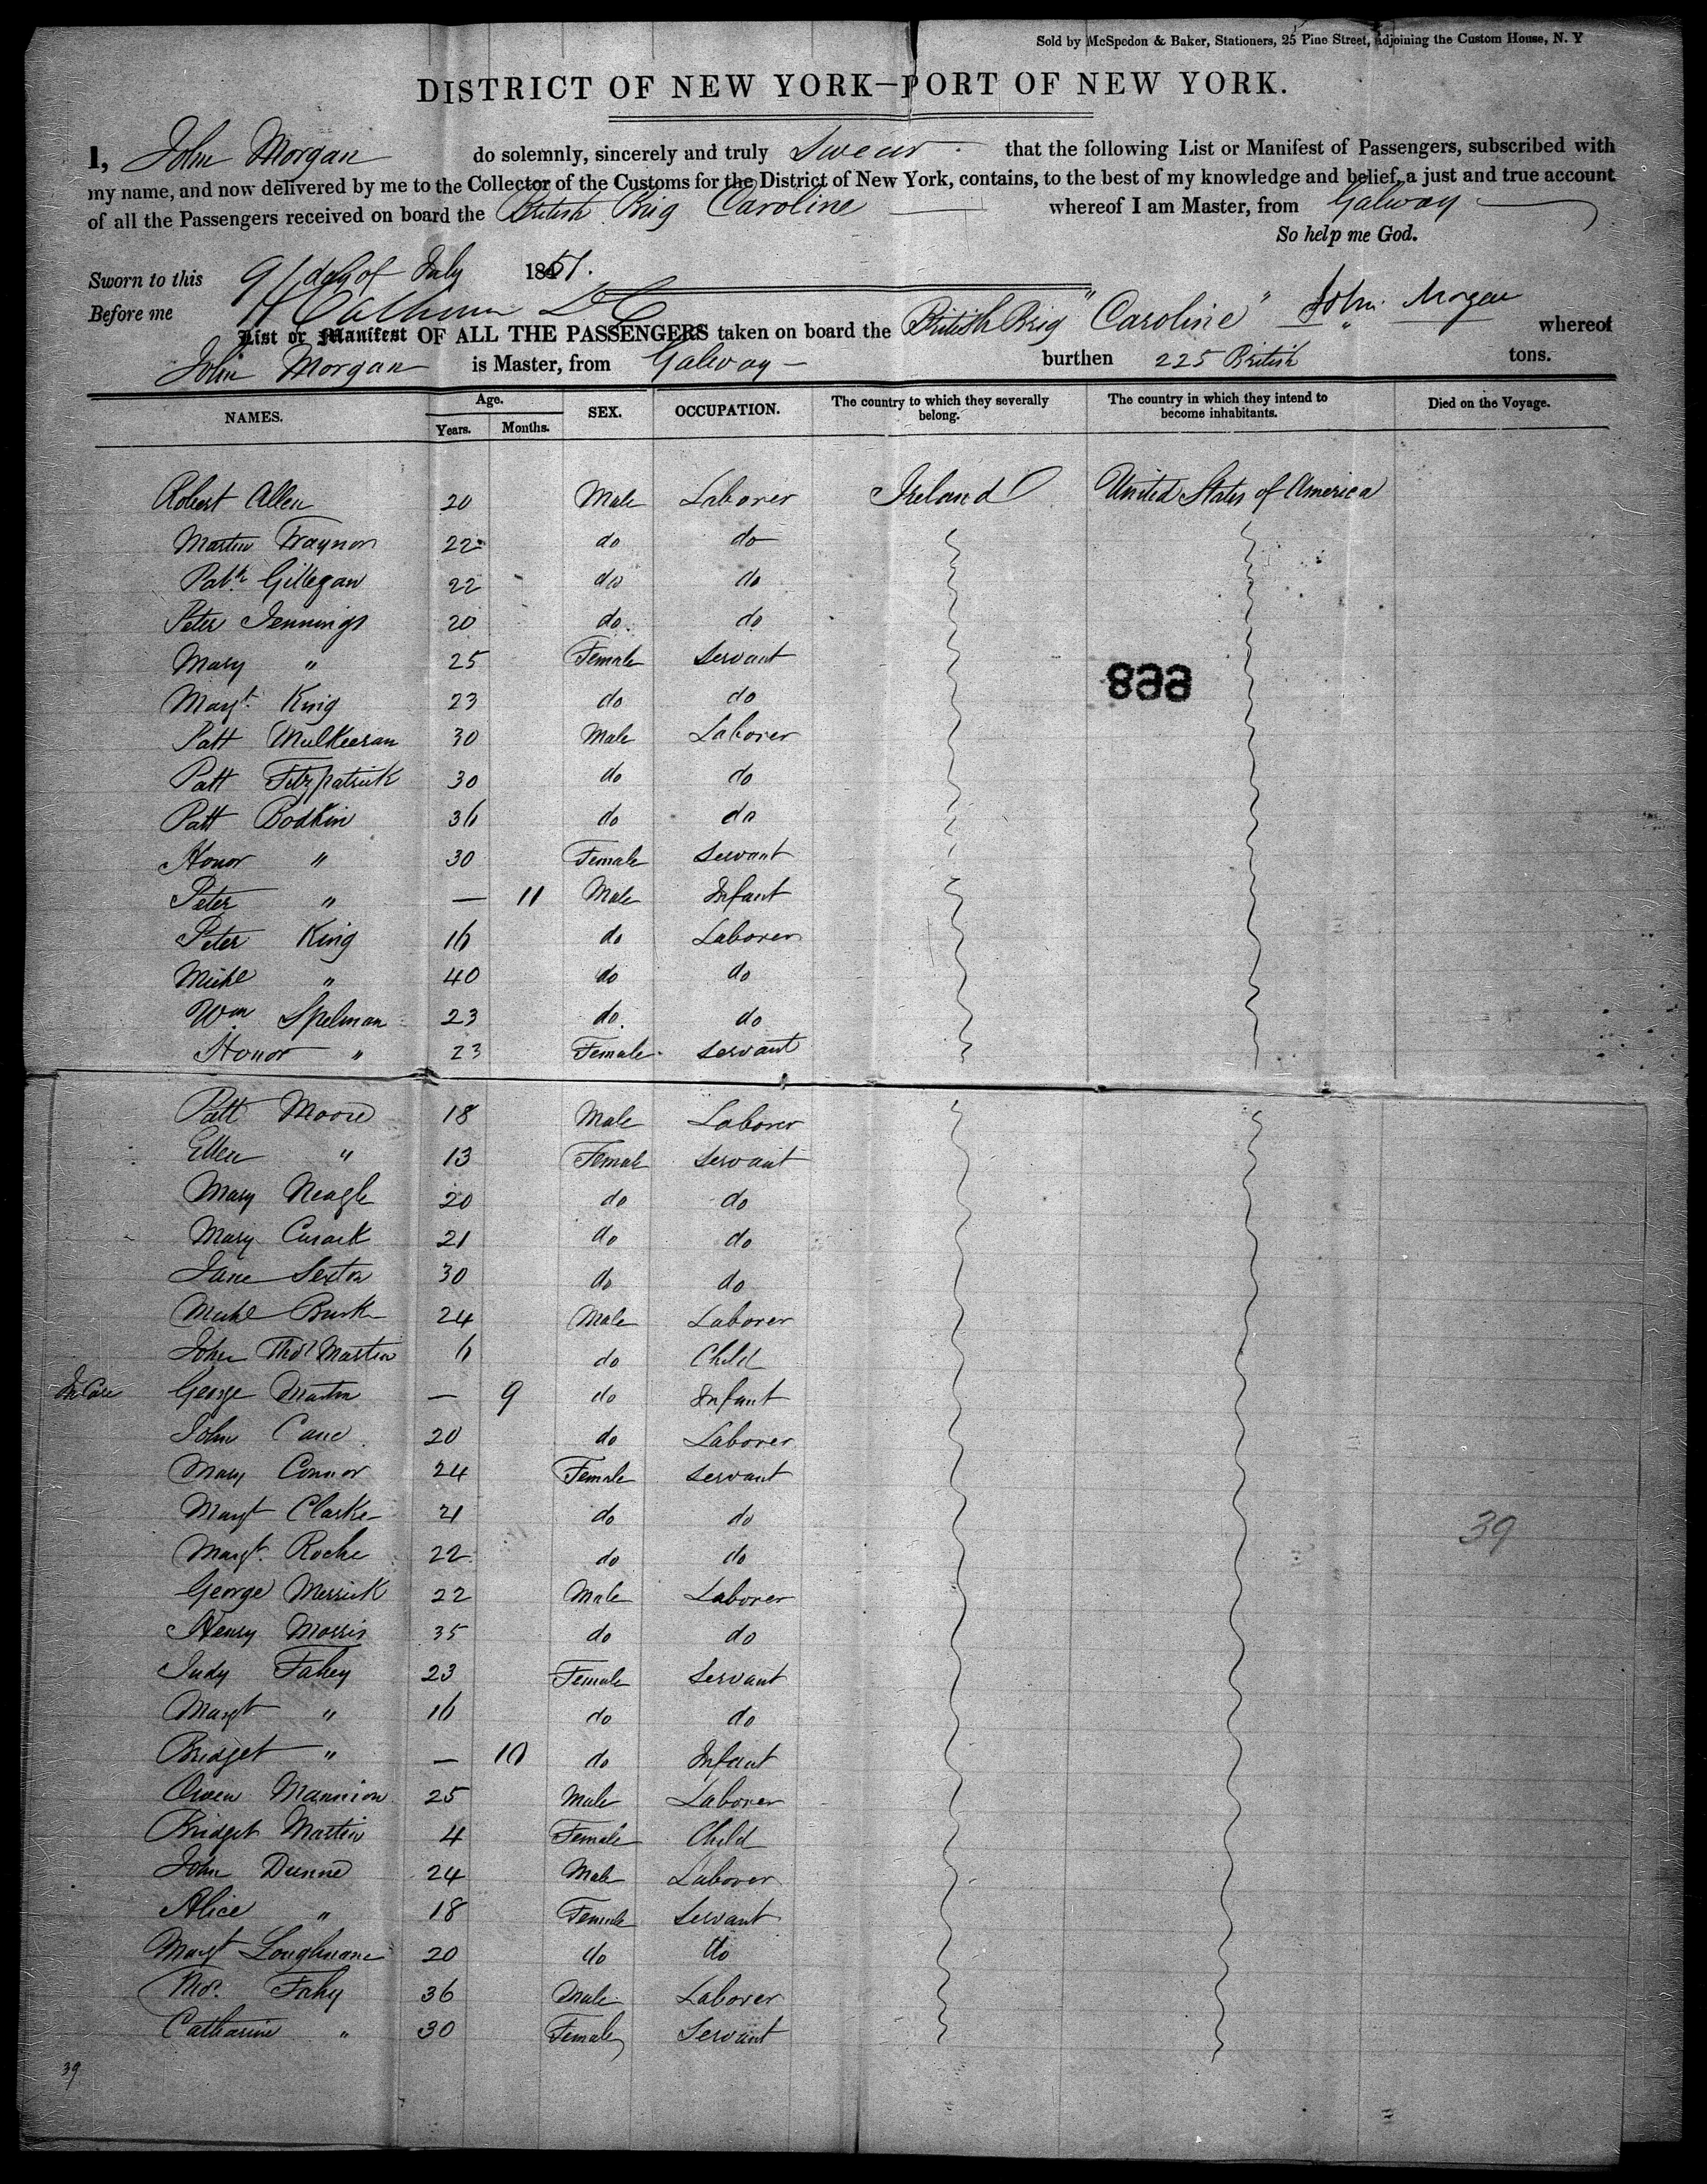 Sold by McSpedon & Baker, Stationers, 25 Pine Street, adjoining the Custom House, N. Y
DISTRICT OF NEW YORK—PORT OF NEW YORK.
I, John Morgan do solemnly, sincerely and truly Swear that the following List or Manifest of Passengers, subscribed with
my name, and now delivered by me to the Collector of the Customs for the District of New York, contains, to the best of my knowledge and belief, a just and true account
of all the Passengers received on board the British Brig Caroline whereof I am Master, from Galway
So help me God.
Sworn to this 9 day of July 1851.
Before me John Morgan
List or Manifest OF ALL THE PASSENGERS taken on board the British Brig "Caroline" whereof
John Morgan is Master, from Galway — burthen 225 British tons.
NAMES. Age. Years. Months. SEX. OCCUPATION. The country to which they severally belong. The country in which they intend to become inhabitants. Died on the Voyage.
Robert Allen 20 Male Laborer Ireland United States of America
Martin Traynor 22 do do
Patk. Gillegan 22 do do
Peter Jennings 20 do. do
Mary " 25 Female Servant
Margt. King 23 do do
899
Patt Mulkeeran 30 Male Laborer
Patt Fitzpatrick 30 do do
Patt Bodkin 36 do do
Honor " 30 Female Servant
Peter " — 11 Male Infant
Peter King 16 do Laborer
Michl " 40 do do
Wm Spelman 23 do. do
Honor " 23 Female Servant
Patt Moore 18 Male Laborer
Ellen " 13 Female Servant
Mary Neagle 20 do do
Mary Cusack 21 do do
Jane Sexton 30 do do
Michl Burk 24 Male Laborer
John Thos Martin 6 do Child
George Martin — 9 do Infant
John Cane 20 do Laborer
Mary Connor 24 Female Servant
Margt Clarke 21 do do
39
Margt. Roche 22 do do
George Merrick 22 Male Laborer
Henry Morris 35 do do
Judy Fahey 23 Female Servant
Margt " 16 do do
Bridget " — 10 do Infant
Owen Mannion 25 Male Laborer
Bridget Martin 4 Female Child
John Dunne 24 Male Laborer
Alice " 18 Female Servant
Margt Loughnane 20 do do
Thos. Fahy 36 Male Laborer
Catharine " 30 Female Servant
39